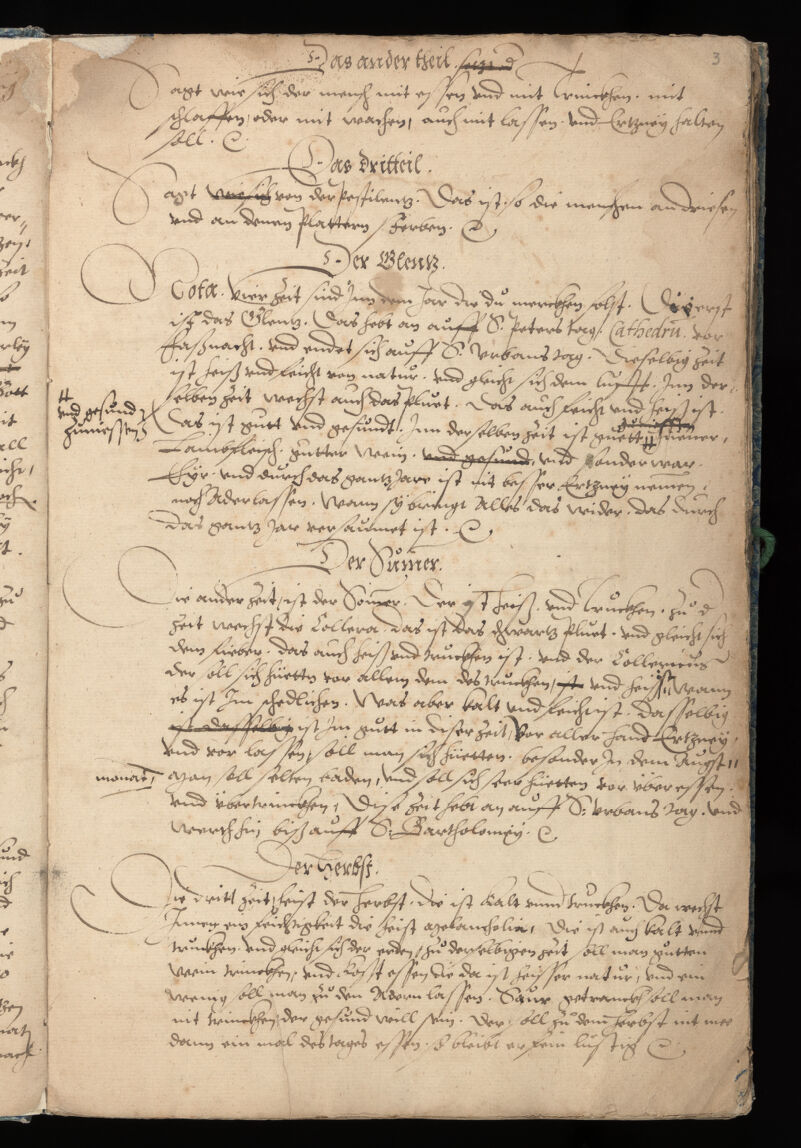 3
Das ander theil.
Sagt wie sich der mensch mit essen vnd mit Trinckhen. mit
schlaffen, oder mit wachen, auch mit lassen. vnd Ertzney halten
soll.
Das dritteil.
Sagt wie sich von der Pestilentz. Das ist. so die menschen an driesen
vnd an denen Plattern sterben.
Der Glentz.
Nota. Vier Zeit sind Jnn dem Jar die du merckhen solst. Die erst
ist das Glentz. Das hebt an auff S. Peters tag. Cathedru. vor
faßnacht. vnd endet sich auff S. Vrbans tag. Dieselbig Zeit
ist heiß vnd feicht von natur. vnd gleicht sich dem lufft. Jnn der
selben Zeit wechst auch das Pluet. Das auch feicht vnd heiß ist.
Das ist gutt vnd gesundt. Jnn derselben Zeit ist guett
vnd gesund
Zuniessen
Lambfleisch. gutter wein. vnd gesund, vnd sonder war.
Ayr. vnd durch das gantz Jare ist nit besser Ertzney nemen,
noch Aderlassen. Wann sy bringt Alles das wider. das durch
das gantz Jar versaumet ist.
Der Sumer.
Die ander Zeit, ist der Somer. Der ist heiß. vnd Truckhen. Zu d
Zeit wechst die Collera. das ist das schwartz Pluet. vnd gleicht sich
dem fieber. das auch heiß vnd truckhen ist. vnd der Collericus
der soll sich hüetten vor allem dem des truckhen, ist vnd heiß, wann
es ist Jm schedlichen. Was aber kalt vnd feicht ist. dasselbig
ist dasselbig ist Jm gutt in diser Zeit, Vor aller hand Ertzney,
vnd vor lassen, soll man sich hüetten. besonder Jn dem Augst
monat,
Man soll selten Baden, vnd soll sich seer hüetten vor über essen.
vnd übertrinckhen, Dise Zeit hebt an auff S. Vrbans tag. vnd
werth hin, biß auff S. Bartholomey.
Der Herbst.
Die dritt Zeit, heist der herbst. die ist kalt vnnd truckhen. Da wechst
Jnnen ein feichtigkeit die heist Melancholia, Die ist auch kalt vnnd
truckhen. vnd gleicht sich der erden, Zu derselbigen Zeit soll man gutten
wein trinckhen, vnd kost essen die da ist heisser natur, vnd ein
wenig soll man Zu den Adern lassen. Saur getranck soll man
nit trinckhen, der gesund will sein. Der soll Zu dem herbst nit mer
dann ein mal des tages essen. so bleibt er fein lustig